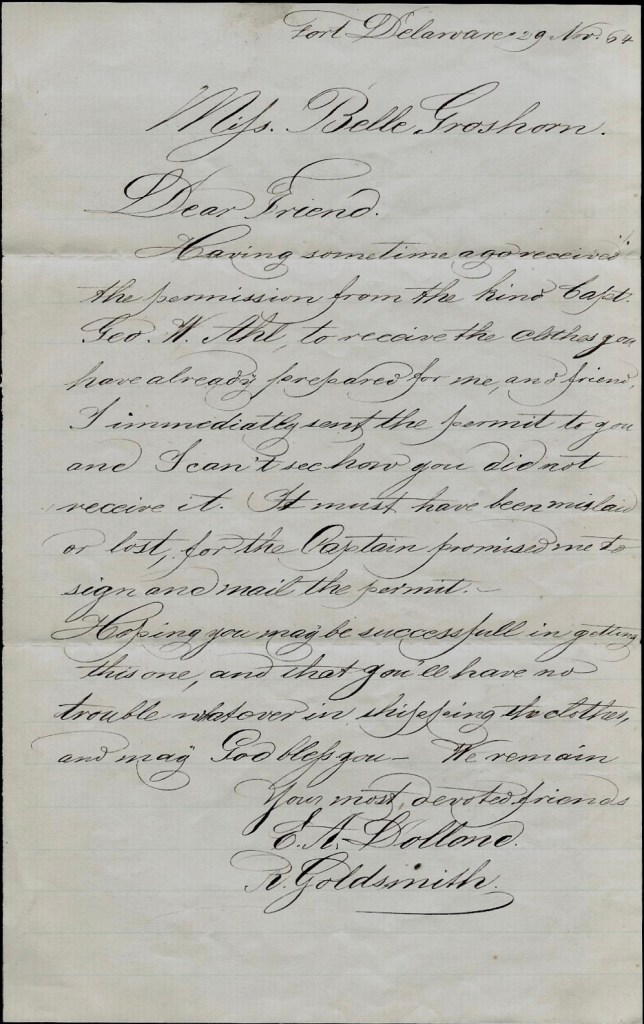 Fort Delaware 29 Nov. 64
Miss. Belle Groshorn.
Dear Friend.
Having sometime ago received
the permission from the kind Capt.
Geo. W. Ahl, to receive the clothes you
have already prepared for me, and friend,
I immediatly sent the permit to you
and I can't see how you did not
receive it. It must have been mislaid
or lost, for the Captain promised me to
sign and mail the permit.—
Hoping you may be successfull in getting
this one, and that you'll have no
trouble whatever in shipping the clothes,
and may God bless you— We remain
Your most devoted friends
E. A. Dollond.
R. Goldsmith.